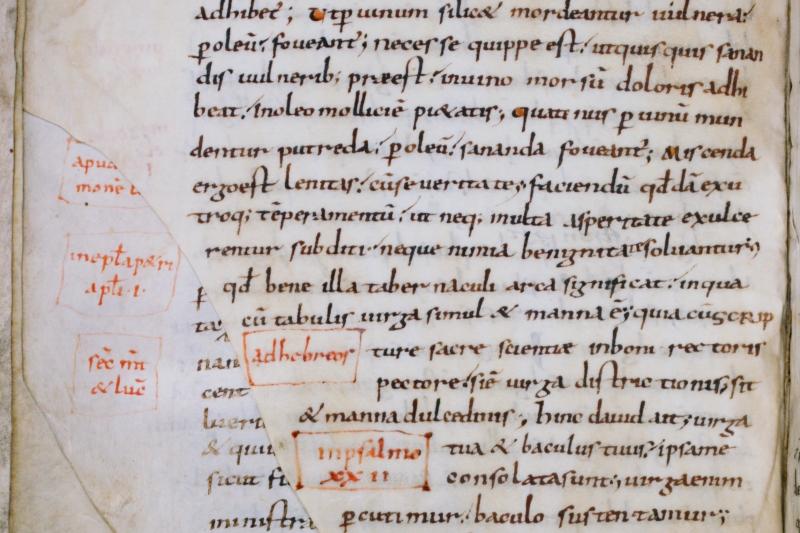 adhibet; Ut p uinum silic& mordeantur uulnera:
p oleū. foueant; necesse quippe est. ut quisquis sanan
dis uulnerib; preest. in uino morsū doloris adhi
beat. In oleo molliciē pi&atis; quatinus p uinū mun
dentur putreda. p oleū. sananda foueant; Miscenda
ergo est lenitas. cū seueritate; faciendū qđdā ex u
troq; tēperamentū. ut neq; multa asperitate exulce
rentur subditi. neque nimia benignitate soluantur;
qđ bene illa tabernaculi arca significat. in qua
cū tabulis uirga simul & manna ē; quia cū scrip
ture sacre scientiae in boni rectoris
pectore. si ē uirga districtionis, sit
& manna dulcedinis; hinc dauid ait; uirga
tua & baculus tuus. ipsa me
consolata sunt; uirga enim
pcutimur. baculo sustentamur;
ad hebreos
in psalmo
xx ii
apti .i.
& luc̄
p
ta
nan
cent
& qui
sicut fi
ministra